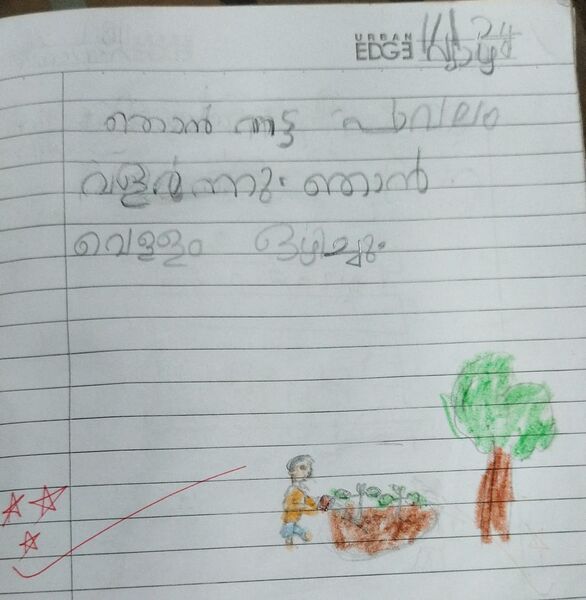 URBAN
EDGE
ഞാൻ നട്ട പാവലം
വളർന്നു. ഞാൻ
വെള്ളം ഒഴിച്ചു.